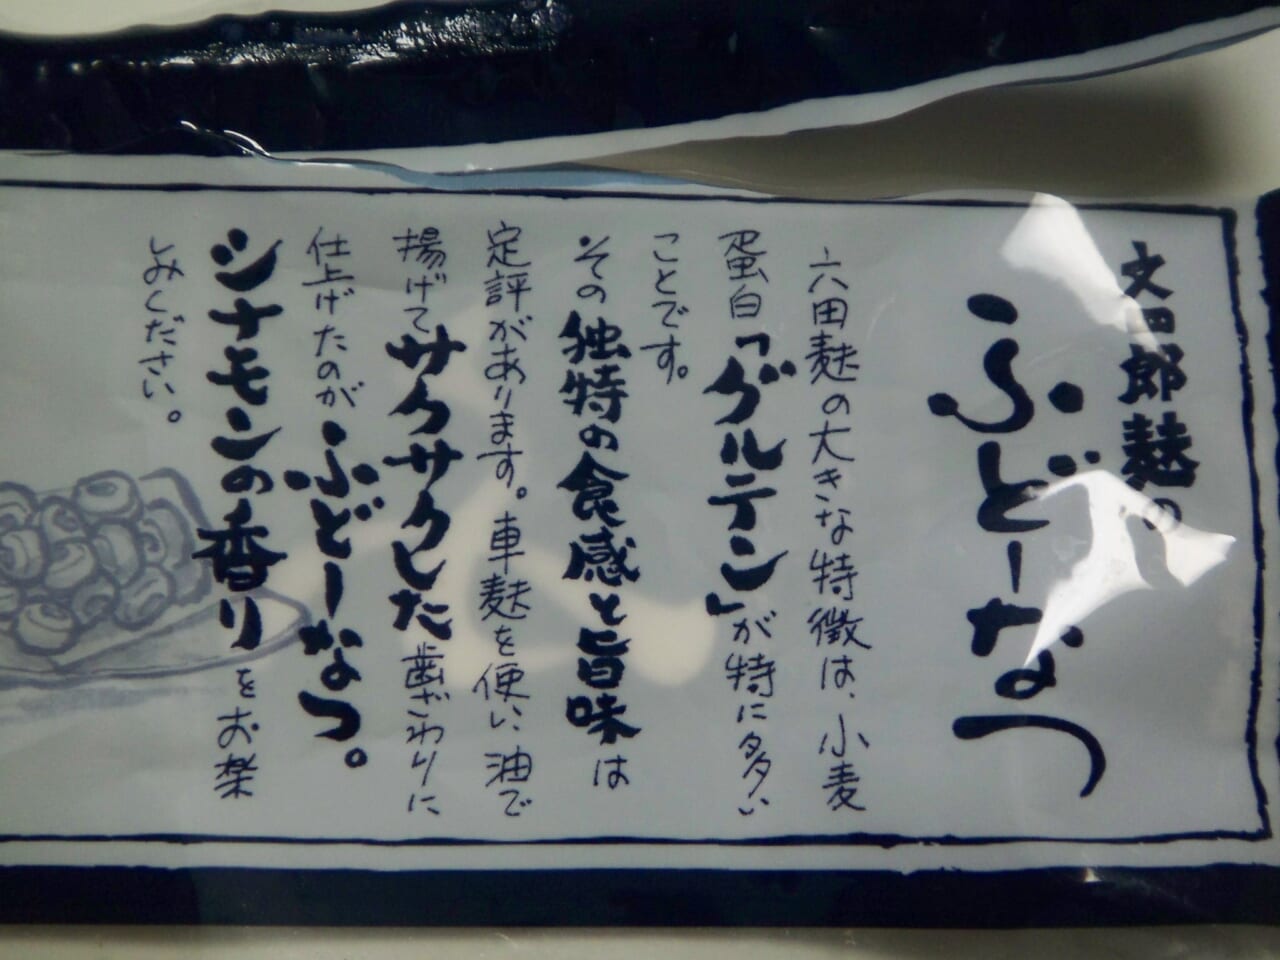 文四郎麩の
ふどーなつ
六田麩の大きな特徴は、小麦
蛋白「グルテン」が特に多い
ことです。
その独特の食感と旨味は
定評があります。車麩を使い、油で
揚げてサクサクした歯ざわりに
仕上げたのがふどーなつ。
シナモンの香りをお楽
しみください。